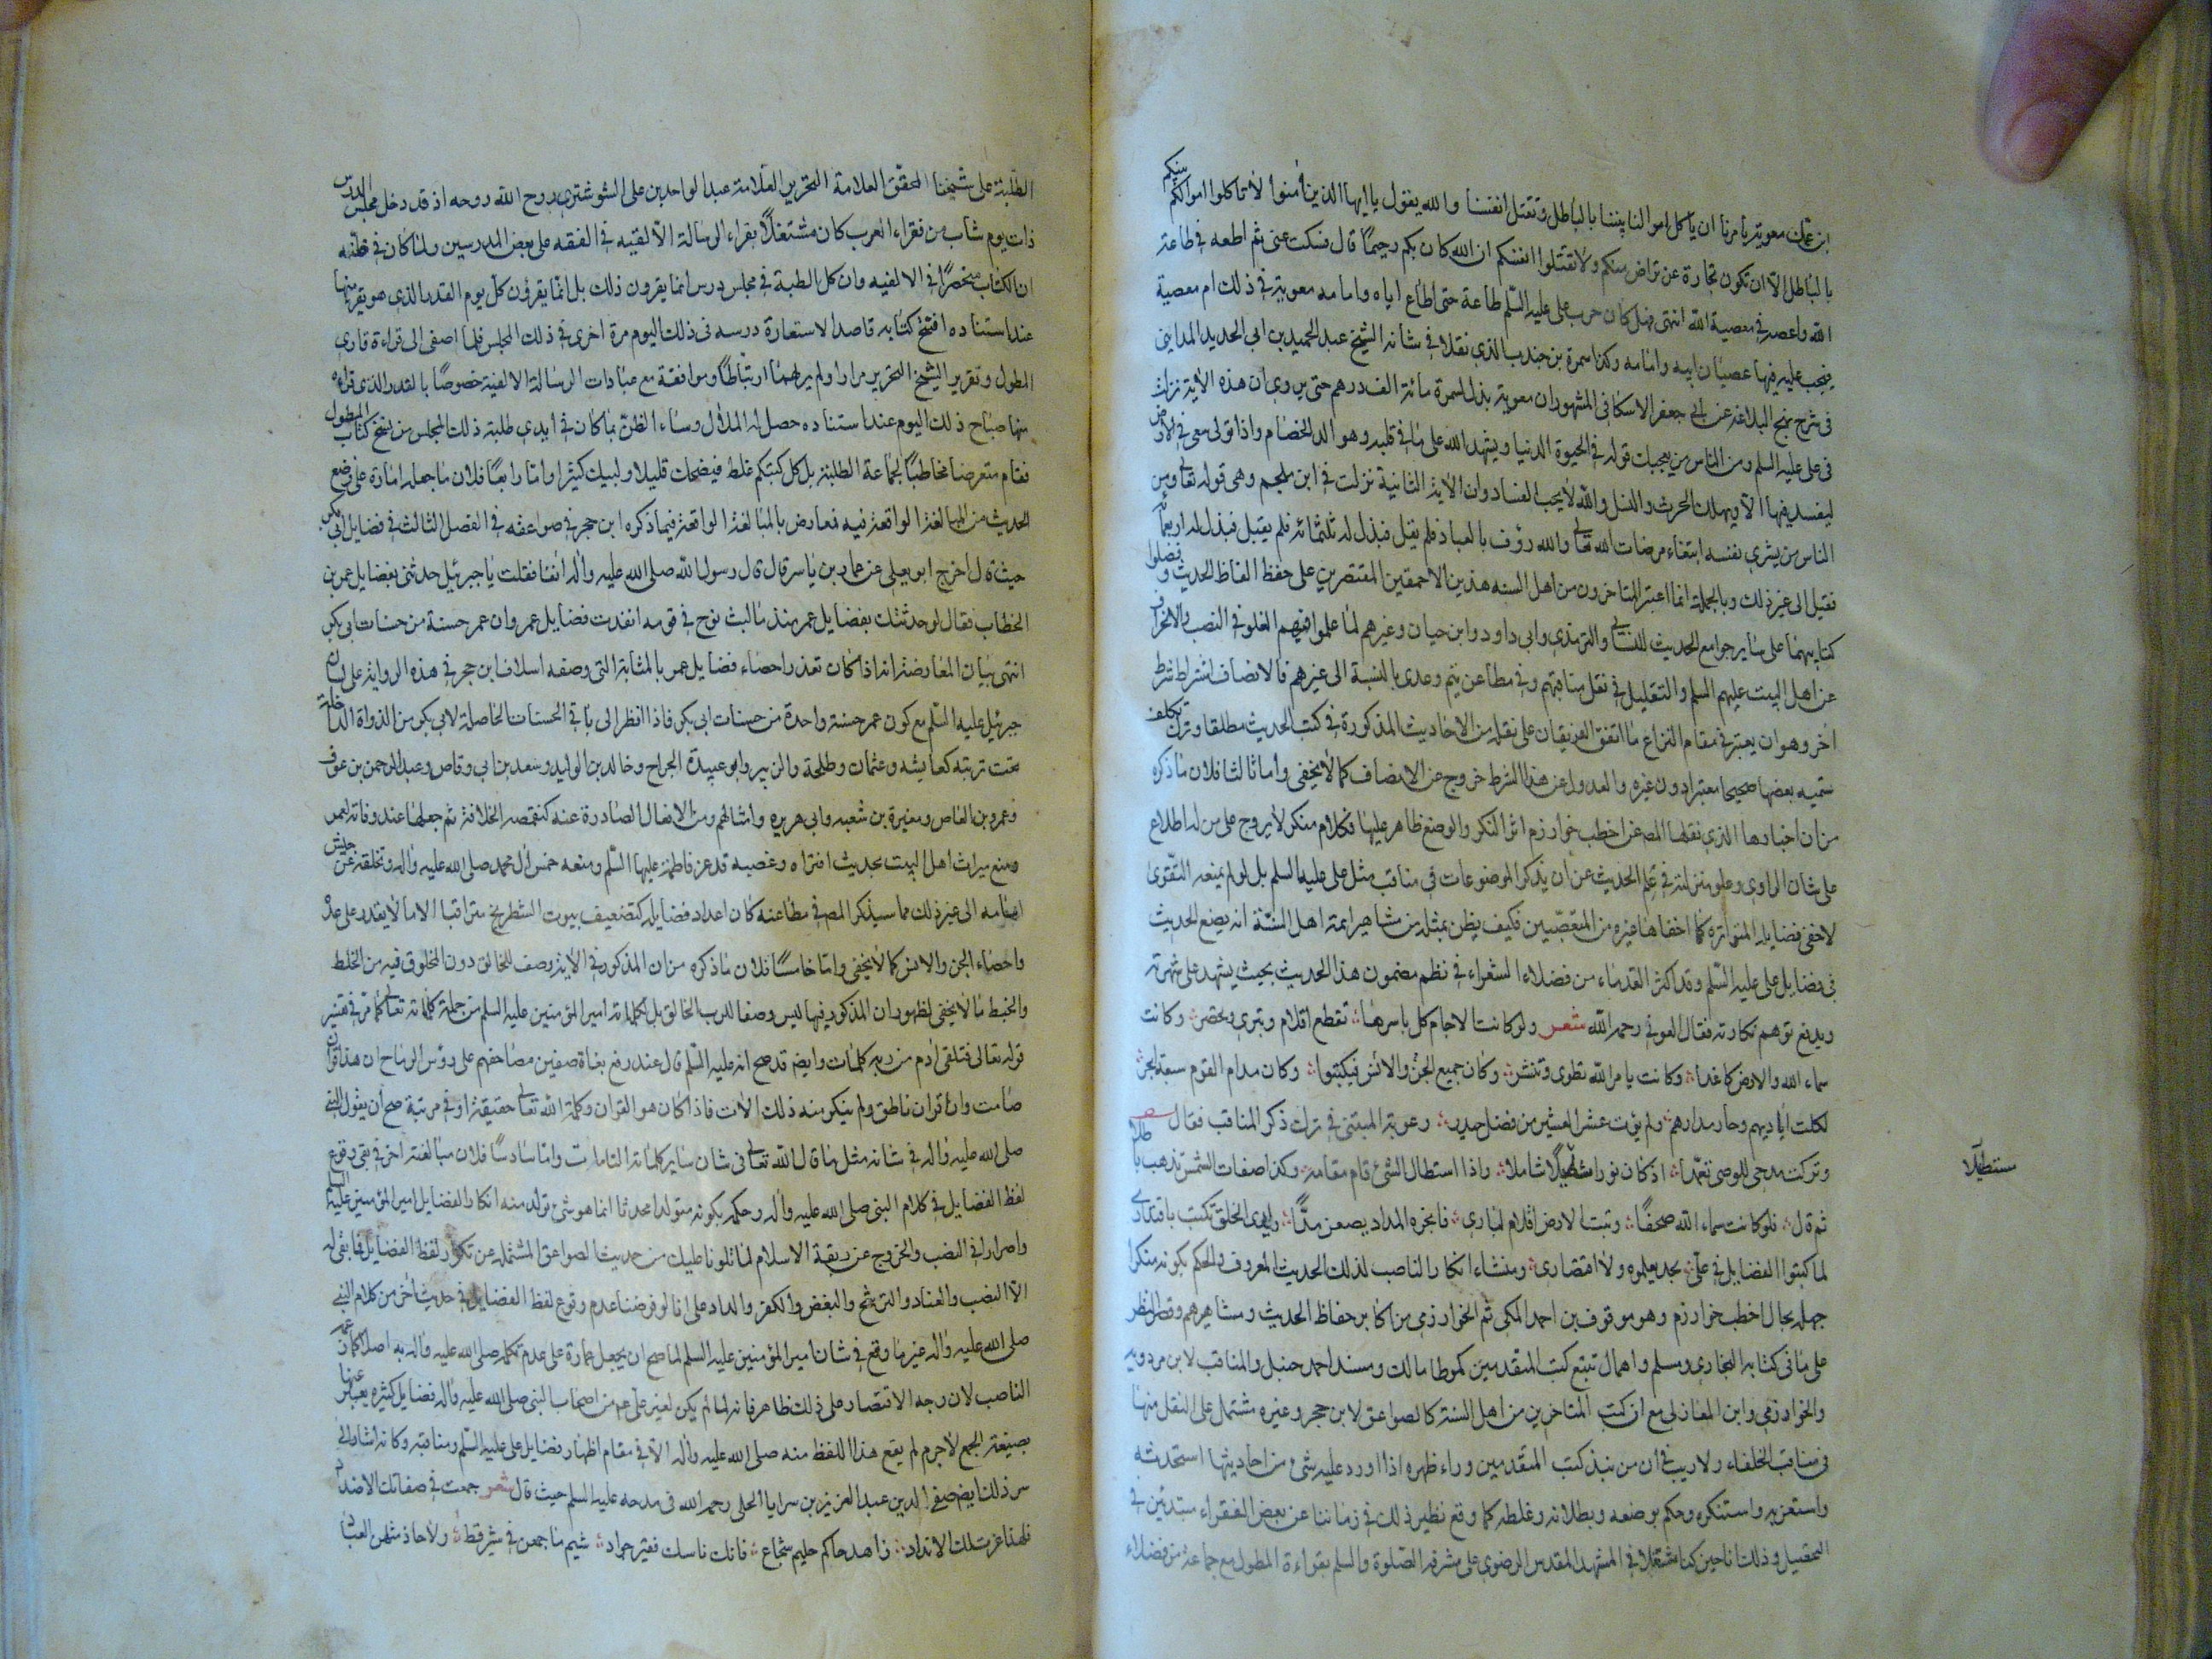 ابن عمك معوية يأمرنا ان يأكل اموالنا بيننا بالباطل وتقتل انفسنا والله يقول يا ايها الذين أمنوا لا تأكلوا اموالكم بينكم
بالباطل الا ان تكون تجارة عن تراض منكم ولا تقتلوا انفسكم ان الله كان بكم رحيمًا قال فسكت عنى ثم اطعه في طاعة
الله واعصه في معصية الله انتهى فهل كان حرب على عليه السلم طاعة حتى اطاع اياه وامامه معوية في ذلك ام معصية
فيجب عليه فيها عصيان ابيه وامامه وكذا سمرة بن جندب الذي نقل في شانه الشيخ عبد الحميد بن ابى الحديد المدايني
في شرح نهج البلاغة عن ابي جعفر الاسكافى المشهور ان معوية بذل لسمرة مائة الف درهم حتى يروى ان هذه الاية نزلت
في على عليه السلم ومن الناس من يعجبك قوله في الحيوة الدنيا ويشهد الله على ما في قلبه وهو الد الخصام واذا تولى سعى في الارض
ليفسد فيها الآ ويهلك الحرث والنسل والله لا يحب الفساد وان الاية الثانية نزلت في ابن ملجم وهى قوله تعالى ومن
الناس من يشرى نفسه ابتغاء مرضات الله تعالى والله رؤف بالعباد فلم يقبل فبذل له ثلثمائة فلم يقبل فبذل له اربعمائة
فقبل الى غير ذلك وبالجملة انما اعتبر المتاخرون من اهل السنه هذين الاحمقين المقتصرين على حفظ الفاظ الحديث وفضلوا
كتابيهما على ساير جوامع الحديث للنسائى والترمذى وابى داود وابن حيان وغيرهم لما علموا فيهم الغلو في النصب والانحراف
عن اهل البيت عليهم السلم والتقليل في نقل مناقبهم وفي مطاعن تيم وعدى بالنسبة الى غيرهم فالانصاف اشراط شرط
اخر وهو ان يعتبر في مقام النزاع ما اتفق الفريقان على نقله من الاحاديث المذكورة في كتب الحديث مطلقا وترك تكلف
تسميه بعضها صحيحا معتبرا دون غيره والعدول عن هذا الشرط خروج عن الانصاف كما لا يخفى واما ثالثا فلان ما ذكره
من ان اخبارها الذي نقلها المص عن اخطب خوارزم اثر النكر والوضع ظاهر عليها فكلام منكر لا يروج على من له اطلاع
على شان الراوى وعلو منزلته في علم الحديث عن ان يذكر الموضوعات في مناقب مثل على عليه السلم بل لو لم يمنعه التقوى
لاخفى فضايله المتواتره كما اخفاها غيره من المتعصبيين فكيف يظن بمثله من مشاهير ايمة اهل السنة انه يضع الحديث
في فضايل على عليه السلم وقد اكثر القدماء من فضلاء الشعراء في نظم مضمون هذا الحديث بحيث يشهد على شهرته
ويدفع توهم نكارته فقال العوني رحمه الله شعر ولو كانت الاجام كل باسرها تقطع اقلام وتبرى وتحضر وكانت
سماء الله والارض كاغدا وكانت بامر الله تطوى وتنشر وكان جميع الجن والانس فيكتبوا وكان مدام القوم سبعة ابحر
لكلت اياديهم وحار مدارهم ولم يؤت عشر العشير من فضل حيدر وعوتب المتنبى في ترك ذكر المناقب فقال شعر
وتركت مدحى للوصى تعمدا اذ كان نورا مستطيلا شاملا واذا استطال الشئ قام مقامه وكذا صفات الشمس تذهب باطلا
مستطيلا
ثم قال فلو كانت سماء الله صحفًا ونبت الارض اقلام لبارى فابحره المداد بصعن مدًا وايدى الخلق تكتب باقتدارى
لما كتبوا الفضايل في على بحد يعلموه ولا اقتصارى ومنشاء انكار الناصب لذلك الحديث المعروف والحكم بكونه منكرا
جهله بحال اخطب خوارزم وهو موفق بن احمد المكى ثم الخوارزمى من اكابر حفاظ الحديث ومشاهيرهم وقصر النظر
على ما فى كتابى البخارى ومسلم واهمال تتبع كتب المتقدمين كموطا مالك ومسند احمد حنبل والمناقب لابن مردويه
والخوارزمى وابن المغازلى مع ان كتب المتاخرين من اهل السنة كالصواعق لابن حجر وغيره مشتمل على النقل منها
في مناقب الخلفاء ولا ريب في ان من نبذ كتب المتقدمين وراء ظهره اذا اورد عليه شئ من احاديثها استحدثه
واستغربه واستنكره وحكم بوضعه وبطلانه وغلطه كما وقع نظير ذلك في زماننا عن بعض الفقراء مبتدئين في
التحصيل وذلك انا حين كنا مشتغلا في المشهد المقدس الرضوى على مشرفه الصلوة والسلم بقراءة المطول مع جماعة من فضلاء
الطلبة على شيخنا المحقق العلامة النحرير العلامة عبد الواحد بن على الشوشترى روح الله روحه اذ قد دخل مجلس الدرس
ذات يوم شاب من فقراء العرب كان مشتغلاً بقراءة الرسالة الالفيه في الفقه على بعض المدرسين ولما كان في ظنه
ان الكتاب منحصرًا في الالفيه وان كل الطبة في مجلس درس انما يقرون ذلك بل انما يقرؤن كل يوم القدر الذى هو يقرء منها
عند استناده افتتح كتابه قاصدا لاستعارة درسه فى ذلك اليوم مرة اخرى في ذلك المجلس فلما اصغى الى قراءة قارى
المطول وتقرير الشيخ النحرير مرارا ولم ير لهما ارتباطًا وموافقة مع عبادات الرسالة الالفية خصوصًا بالقدر الذى قراءه
منها صباح ذلك اليوم عند استناده حصل له الملال وساء الظن بما كان في ايدى طلبة ذلك المجلس من نسخ كتاب المطول
فقام متعرضا مخاطبًا لجماعة الطلبة بل كل كتبكم غلط فيضحك قليلا وليبك كثيرا واما رابعًا فلان ما جعله امارة على وضع
الحديث من المبالغة الواقعة فيه فمعارض بالمبالغة الواقعة فيما ذكره ابن حجر في صواعقه في الفصل الثالث في فضايل ابى بكر
حيث قال اخرج ابو يعلى عن عمار بن ياسر قال قال رسول الله صلى الله عليه واله انفا فقلت يا جبرئيل حدثنى بفضايل عمر بن
الخطاب فقال لو حدثتك بفضايل عمر منذ ما لبث نوح في قومه انفدت فضايل عمر وان عمر حسنة من حسنات ابى بكر
انتهى بيان المعارضة انه اذا كان تعذر احصاء فضايل عمر بالمثابة التى وصفه اسلاف ابن حجر في هذه الرواية على لسان
جبرئيل عليه السلم مع كون عمر حسنة واحدة من حسنات ابى بكر فاذا انظر الى باقى الحسنات الحاصلة لابى بكر من الذواة الداخلة
تحت تربته كعايشه وعثمان وطلحة والزبير وابو عبيدة الجراح وخالد بن الوليد وسعد بن ابى وقاص وعبد الرحمن بن عوف
وعمرو بن العاص ومغيرة بن شعبه وابى هريره وامثالهم ومن الافعال الصادرة عنه كتقمصه الخلافة ثم جعلها عند وفاته لعمر
ومنع ميراث اهل البيت بحديث افتراه وغصبه فدك عن فاطمة عليها السلم ومنعه خمس ال محمد صلى الله عليه واله وتخلفه عن جيش
اسامه الى غير ذلك مما سيذكر المص في مطاعنه كان اعداد فضايله كتضعيف بيوت الشطرنج متراقبا الا ما لا يقدر على عده
واحصاء الجن والانس كما لا يخفى واما خامسًا فلان ما ذكره من ان المذكور في الاية وصف للخالق دون المخلوق فيه من الخلط
والخبط ما لا يخفى لظهور ان المذكور فيها ليس وصفا للرب الخالق بل لكلماته امير المؤمنين عليه السلم من جملة كلماته تعالى كما مر في تفسير
قوله تعالى فتلقى ادم من ربه كلمات وايض قد صح انه عليه السلم قال عند رفع بغاة صفين مصاحفهم على رؤس الرماح ان هذا قران
صامت وانا قران ناطق ولم ينكر منه ذلك الان فاذا كان هو القران وكلمة الله تعالى حقيقة او في مرتبة صح ان يقول النبى
صلى الله عليه واله في شانه مثل ما قال الله تعالى فى شان ساير كلماته التامات واما سادسًا فلان مبالغته اخر في نفى وقوع
لفظ الفضايل في كلام النبى صلى الله عليه واله وحكمه بكونه متولدا محدثا انما هو شئ تولد منه انكارا لفضايل امير المؤمنين عليه السلم
واصرارا في النصب والخروج عن ربقة الاسلام لما تلونا عليك من حديث الصواعق المشتمل عن تكرار لفظ الفضايل فما بقى له
الا النصب والعناد والترشح والبغض والكفر والداد على انا لو فرضنا عدم وقوع لفظ الفضايل في حديث اخر من كلام النبى
صلى الله عليه واله غير ما وقع في شان امير المؤمنين عليه السلم لما صح ان يجعل امارة على عدم تكلمه صلى الله عليه واله به اصلا كما زعمه
الناصب لان وجه الاقتصار على ذلك ظاهر فانه لما لم يكن لغير على عم من اصحاب النبى صلى الله عليه واله فضايل كثيره يعبر عنها
بصيغة الجمع لا جرم لم يقع هذا اللفظ منه صلى الله عليه واله الا في مقام اظهار فضايل على عليه السلم ومناقبه وكانه اشار الى
سر ذلك ايضم صفى الدين عبد العزيز بن سرايا الحلى رحمه الله فى مدحه عليه السلم حيث قال شعر جمعت في صفاتك الاضداد
فلهذا عزت لك الانداد زاهد حاكم حليم شجاع فاتك ناسك فقير جواد شيم ما جمعن في بشر قط ولا حاز مثلهن العباد